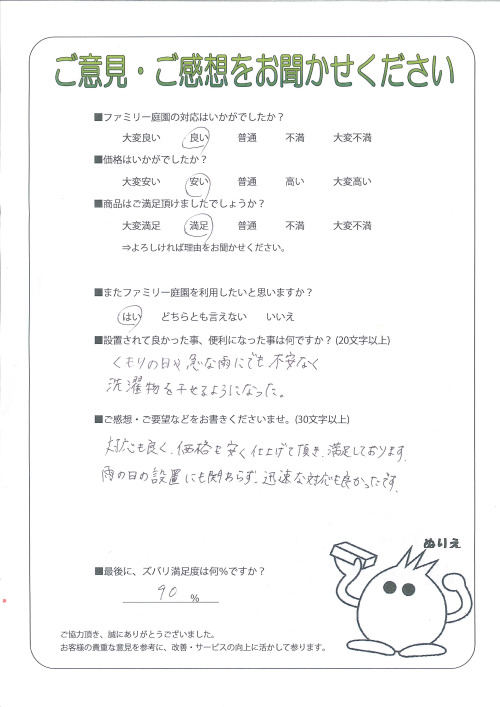 ご意見・ご感想をお聞かせください
■ファミリー庭園の対応はいかがでしたか？
大変良い 良い 普通 不満 大変不満
■価格はいかがでしたか？
大変安い 安い 普通 高い 大変高い
■商品はご満足頂けましたでしょうか？
大変満足 満足 普通 不満 大変不満
⇒よろしければ理由をお聞かせください。
■またファミリー庭園を利用したいと思いますか？
はい どちらとも言えない いいえ
■設置されて良かった事、便利になった事は何ですか？(20文字以上)
くもりの日や急な雨にでも不安なく
洗濯物を干せるようになった。
■ご感想・ご要望などをお書きくださいませ。(30文字以上)
対応も良く、価格も安く仕上げて頂き、満足しております。
雨の日の設置にも関わらず、迅速な対応も良かったです。
ぬりえ
■最後に、ズバリ満足度は何%ですか？
90 %
ご協力頂き、誠にありがとうございました。
お客様の貴重な意見を参考に、改善・サービスの向上に活かして参ります。